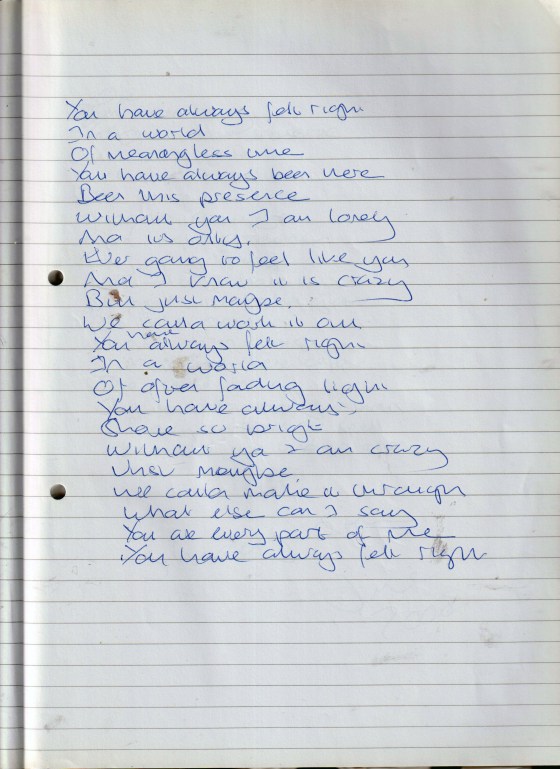 You have always felt right
In a world
Of meaningless time
You have always been here
Been this presence
Without you I am lonely
And its only
Ever going to feel like you
And I know it is crazy
But just maybe
We coulda work it out
You have always felt right
In a world
Of ever fading light
You have always
Shone so bright
Without ya I am crazy
Just maybe
We coulda make it through
What else can I say
You are every part of me
You have always felt right